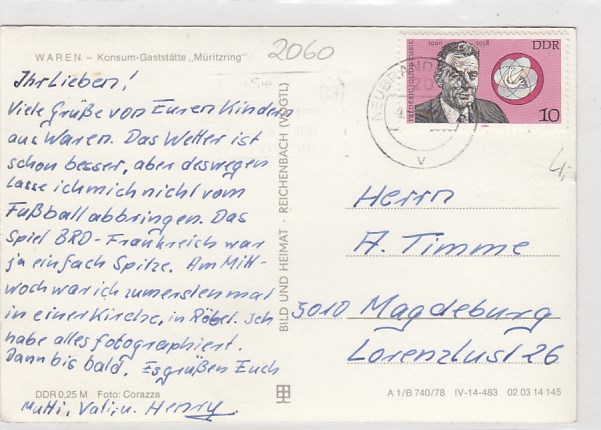 WAREN – Konsum-Gaststätte „Müritzring"
2060
Ihr Lieben!
Viele Grüße von Euren Kindern
aus Waren. Das Wetter ist
schon besser, aber deswegen
lasse ich mich nicht vom
Fußball abbringen. Das
Spiel BRD-Frankreich war
ja einfach Spitze. Am Mitt-
woch war ich zum ersten mal
in einer Kirche, in Röbel. Ich
habe alles fotographiert.
Dann bis bald. Es grüßen Euch
Mutti, Vati, u. Henry.
DDR 0,25 M Foto: Corazza
BILD UND HEIMAT · REICHENBACH (VOGTL)
1900 1958
DDR
10
NEUBRANDE
v
Herrn
A. Timme
3010 Magdeburg
Lorenzlust 26
A 1/B 740/78 IV-14-483 02 03 14 145